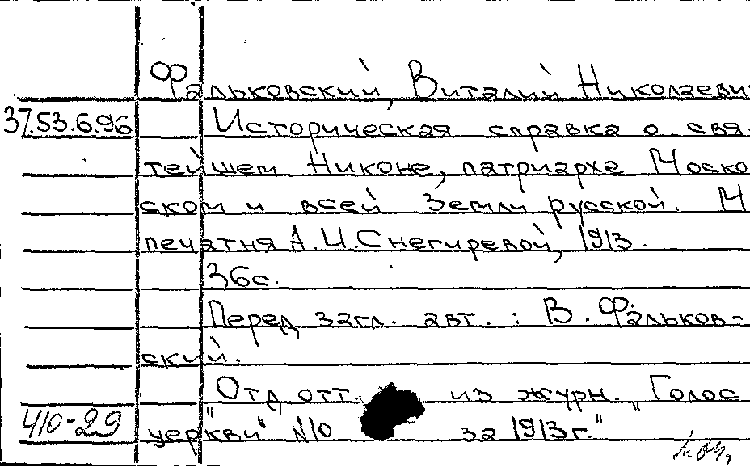 Фальковский, Виталий Николаеви
37.53.6.96 Историческая справка о свя-
тейшем Никоне, патриархе Моско
ском и всей Земли русской. М
печатня А.И.Снегиревой, 1913.
36с.
Перед загл. авт.: В. Фальков-
ский.
Отд. отт. из журн. "Голос
410-29 церкви" №10 за 1913г."